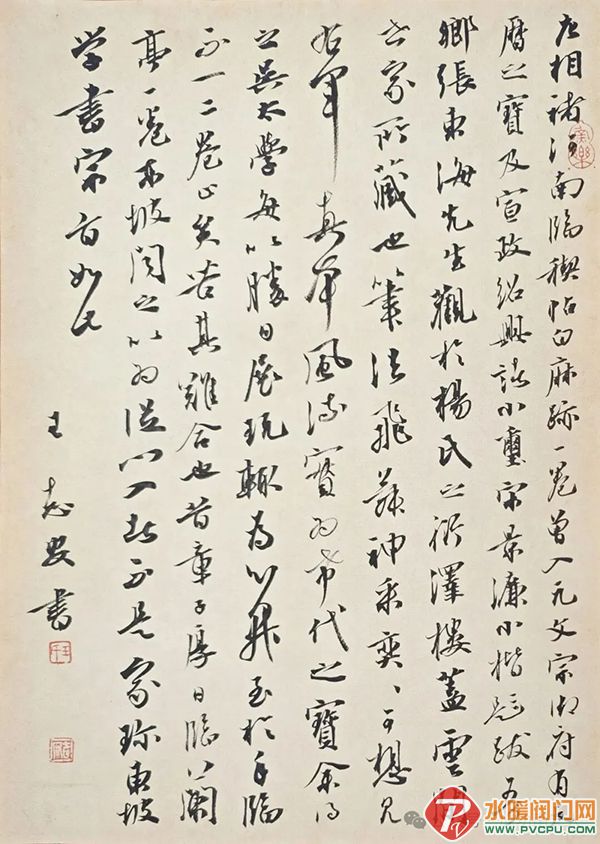 右相褚河南臨禊帖白麻跡一卷曾入元文宗御府有天
曆之寶及宣政紹興諸小璽宋景濂小楷題跋吾
鄉張東海先生觀於楊氏之衍澤樓蓋雲間
世家所藏也筆法飛舞神采奕〻可想見
右軍真本風流實為希代之寶余得
之吳太學每以勝日展玩輒為心開至於手臨
不一二卷止矣苦其難合也昔章子厚日臨蘭
亭一卷東坡聞之以為從門入者不是家珍東坡
學書宗旨如此
王志安書
水暖阀门网
WWW.PVCPU.COM